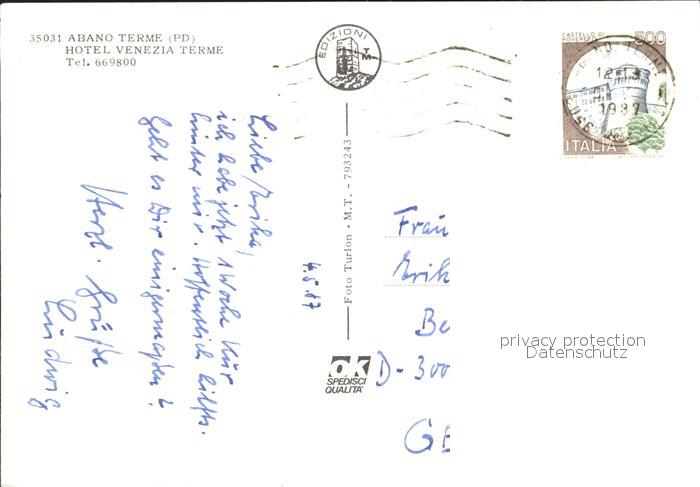 35031 ABANO TERME (PD)
HOTEL VENEZIA TERME
Tel. 669800
EDIZIONI
TM
CASTELLO DI
ROVERETO
500
TERME
12-13
1987
ITALIA
Liebe Erika!
ich habe jetzt 1 Woche Kur
hinter mir. Hoffentlich hilfts.
Geht es Dir einigermaßen?
Herzl. Grüße
Ludwig
4.5.87
Foto Turlon - M.T. - 793243
OK
SPEDISCI
QUALITÀ
Frau
Erik
Be
D-300
GE
privacy protection
Datenschutz